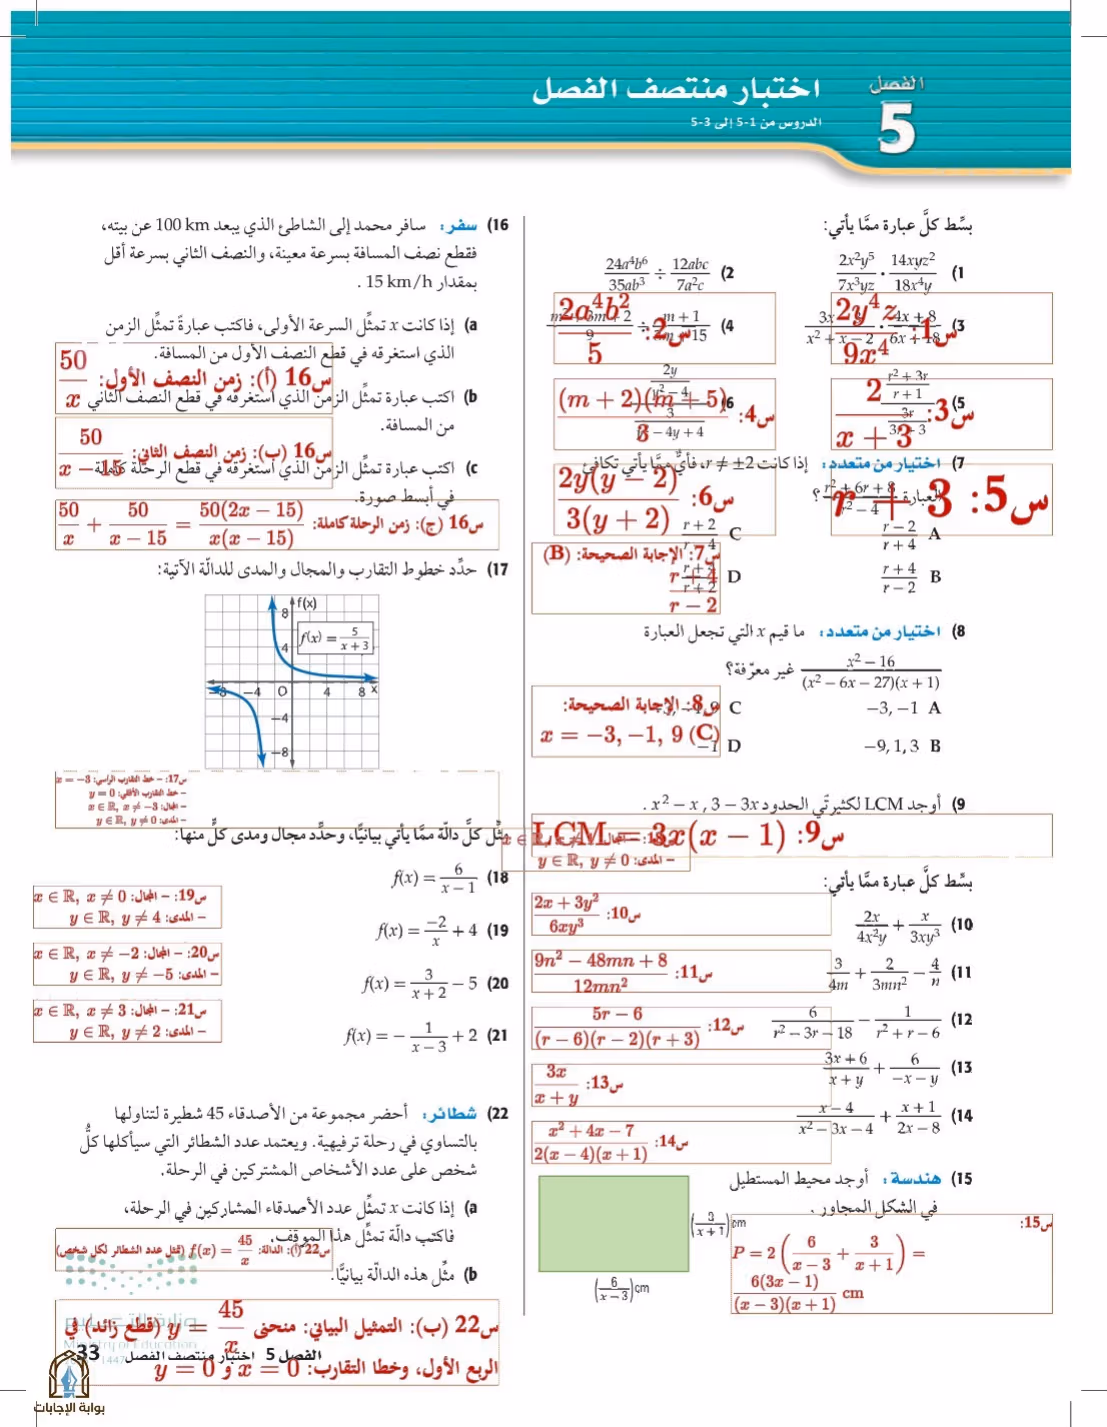 الفصل
5
اختبار منتصف الفصل
الدروس من 1-5 إلى 3-5
بسِّط كلَّ عبارة ممَّا يأتي:
(1 2x²y⁵/7x³yz · 14xyz²/18x⁴y
(2 24a⁴b⁶/35ab³ ÷ 12abc/7a²c
س1: 2y⁴z/9x⁴
س2: 2a⁴b²/5
(3
(4
س3: 2/x + 3
س4: (m + 2)(m + 5)/3
(5
(6
س5: r + 3
س6: 2y(y − 2)/3(y + 2)
(7 اختيار من متعدد: إذا كانت r ≠ ±2، فأيٌّ ممَّا يأتي تكافئ
العبارة r² + 6r + 8/r² − 4 ؟
A r − 2/r + 4
C
B r + 4/r − 2
D
س7: الإجابة الصحيحة: (B)
r + 4/r − 2
(8 اختيار من متعدد: ما قيم x التي تجعل العبارة
x² − 16/(x² − 6x − 27)(x + 1) غير معرّفة؟
A −3, −1
C
B −9, 1, 3
D −1
س8: الإجابة الصحيحة:
x = −3, −1, 9 (C)
(9 أوجد LCM لكثيرتَي الحدود x² − x , 3 − 3x .
س9: LCM = 3x(x − 1)
بسِّط كلَّ عبارة ممَّا يأتي:
(10 2x/4x²y + x/3xy³
س10: 2x + 3y²/6xy³
(11 3/4m + 2/3mn² − 4/n
س11: 9n² − 48mn + 8/12mn²
(12 6/r² − 3r − 18 − 1/r² + r − 6
س12: 5r − 6/(r − 6)(r − 2)(r + 3)
(13 3x + 6/x + y + 6/−x − y
س13: 3x/x + y
(14 x − 4/x² − 3x − 4 + x + 1/2x − 8
س14: x² + 4x − 7/2(x − 4)(x + 1)
(15 هندسة: أوجد محيط المستطيل
في الشكل المجاور .
(3/x + 1) cm
(6/x − 3) cm
س15:
P = 2 (6/x − 3 + 3/x + 1) =
6(3x − 1)/(x − 3)(x + 1) cm
(16 سفر: سافر محمد إلى الشاطئ الذي يبعد 100 km عن بيته،
فقطع نصف المسافة بسرعة معينة، والنصف الثاني بسرعة أقل
بمقدار 15 km/h .
(a إذا كانت x تمثِّل السرعة الأولى، فاكتب عبارةً تمثِّل الزمن
الذي استغرقه في قطع النصف الأول من المسافة.
س16 (أ): زمن النصف الأول: 50/x
(b اكتب عبارة تمثِّل الزمن الذي استغرقه في قطع النصف الثاني
من المسافة.
س16 (ب): زمن النصف الثاني: 50/x − 15
(c اكتب عبارة تمثِّل الزمن الذي استغرقه في قطع الرحلة كاملة
في أبسط صورة.
س16 (ج): زمن الرحلة كاملة: 50/x + 50/x − 15 = 50(2x − 15)/x(x − 15)
(17 حدِّد خطوط التقارب والمجال والمدى للدالّة الآتية:
f(x)
f(x) = 5/x + 3
8
4
−8 −4 O 4 8 x
−4
−8
س17: – خط التقارب الرأسي: x = −3
– خط التقارب الأفقي: y = 0
– المجال: x ∈ ℝ, x ≠ −3
– المدى: y ∈ ℝ, y ≠ 0
مثِّل كلَّ دالّة ممَّا يأتي بيانيًّا، وحدِّد مجال ومدى كلٍّ منها:
– المدى: y ∈ ℝ, y ≠ 0
(18 f(x) = 6/x − 1
(19 f(x) = −2/x + 4
س19: – المجال: x ∈ ℝ, x ≠ 0
– المدى: y ∈ ℝ, y ≠ 4
(20 f(x) = 3/x + 2 − 5
س20: – المجال: x ∈ ℝ, x ≠ −2
– المدى: y ∈ ℝ, y ≠ −5
(21 f(x) = − 1/x − 3 + 2
س21: – المجال: x ∈ ℝ, x ≠ 3
– المدى: y ∈ ℝ, y ≠ 2
(22 شطائر: أحضر مجموعة من الأصدقاء 45 شطيرة لتناولها
بالتساوي في رحلة ترفيهية. ويعتمد عدد الشطائر التي سيأكلها كلُّ
شخص على عدد الأشخاص المشتركين في الرحلة.
(a إذا كانت x تمثِّل عدد الأصدقاء المشاركين في الرحلة،
فاكتب دالّة تمثِّل هذا الموقف.
س22 (أ): الدالة: f(x) = 45/x (تمثل عدد الشطائر لكل شخص)
(b مثِّل هذه الدالّة بيانيًّا.
س22 (ب): التمثيل البياني: منحنى y = 45/x (قطع زائد) في
الربع الأول، وخطا التقارب: x = 0 و y = 0
وزارة التعليم
Ministry of Education
1447
الفصل 5 اختبار منتصف الفصل 33
بوابة الإجابات